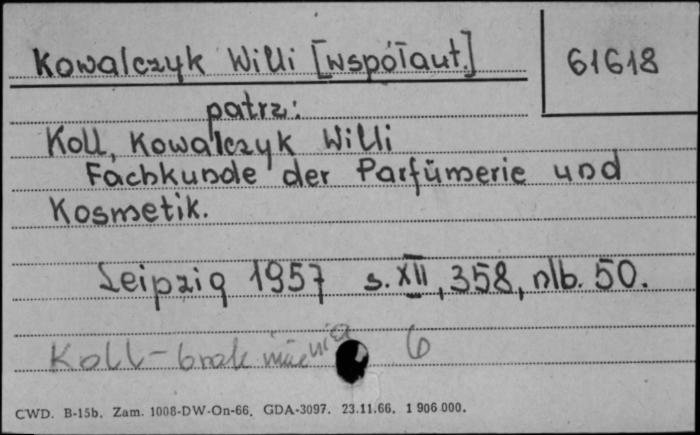 Kowalczyk Willi [współaut.]
61618
patrz:
Koll, Kowalczyk Willi
Fachkunde der Parfümerie und
Kosmetik.
Leipzig 1957 s. XII, 358, nlb. 50.
Koll - brak imienia 6
CWD. B-15b. Zam. 1008-DW-On-66. GDA-3097. 23.11.66. 1 906 000.